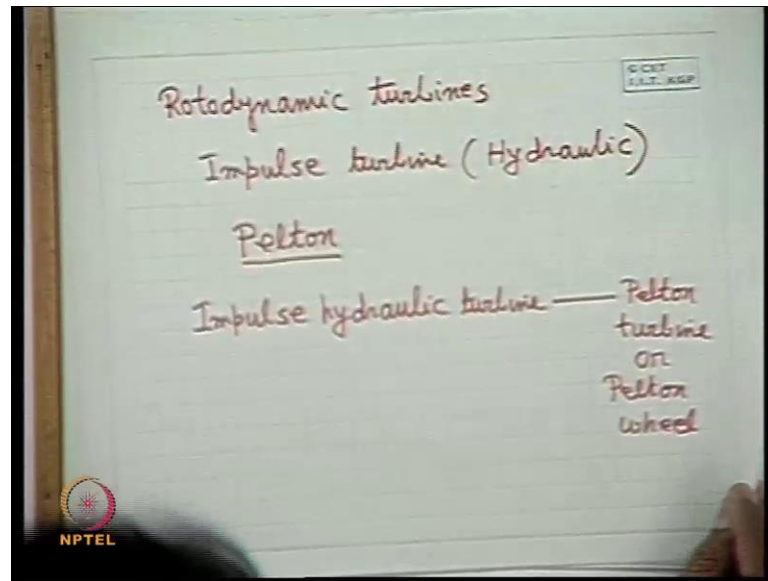 © CET
I.I.T. KGP
Rotodynamic turbines
Impulse turbine (Hydraulic)
Pelton
Impulse hydraulic turbine — Pelton
turbine
or
Pelton
wheel
NPTEL